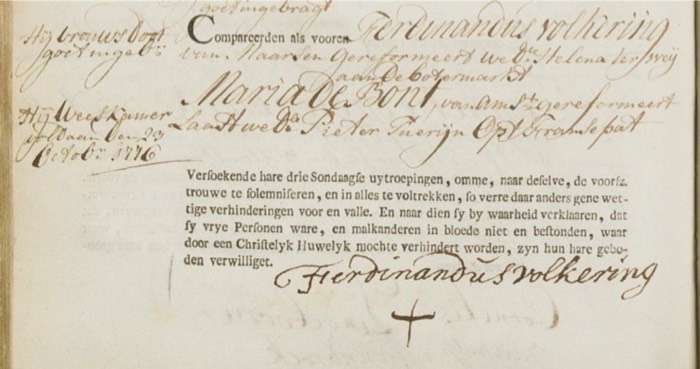 goetingebragt
Hij brouws door
goetingebr
Compareerden als vooren Ferdinandus volkering
van Maarsen gereformeert wed^e Helena ter weij
aan de botermarkt
Maria De Bont, van Amst gereformeert
Laast wed^e Pieter op t fransepat
Hij Weeskamer
voldaan den 23
Octob^r 1776
Versoekende hare drie Sondaagse uytroepingen, omme, naar deselve, de voorsz.
trouwe te solemniseren, en in alles te voltrekken, so verre daar anders gene wet-
tige verhinderingen voor en valle. En naar dien sy by waarheid verklaaren, dat
sy vrye Personen ware, en malkanderen in bloede niet en bestonden, waar
door een Christelyk Huwelyk mochte verhindert worden, zyn hun hare gebo-
den verwilliget.
Ferdinandus volkering